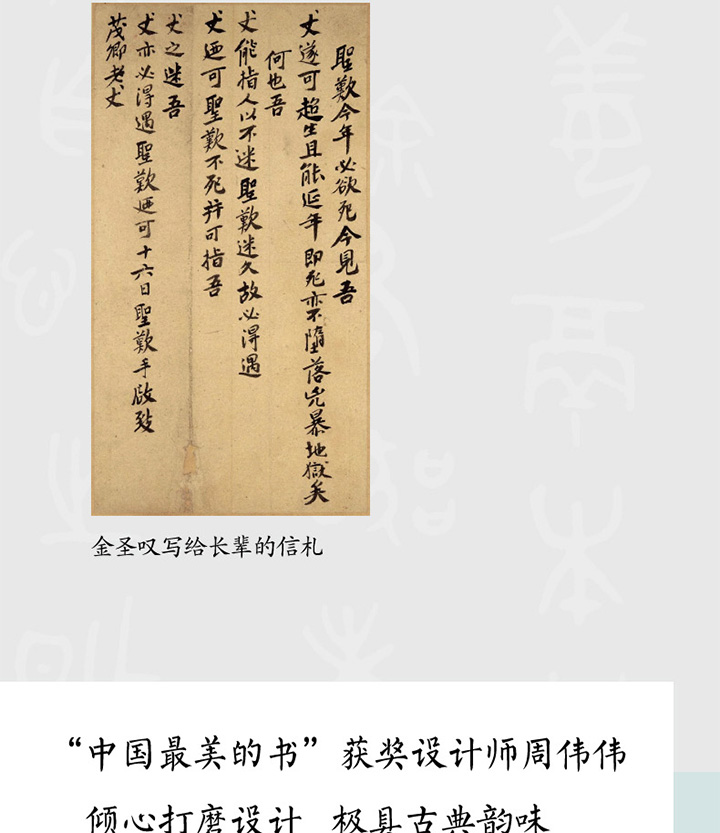 聖歎今年必欲死今見吾
丈遂可超生且能延年即死亦不墮落兇暴地獄矣
何也吾
丈能指人以不迷聖歎迷久故必得遇
丈迺可聖歎不死并可指吾
丈之迷吾
丈亦必得遇聖歎迺可十六日聖歎手啟致
茂卿老丈
金圣叹写给长辈的信札
“中国最美的书”获奖设计师周伟伟
倾心打磨设计 极具古典韵味